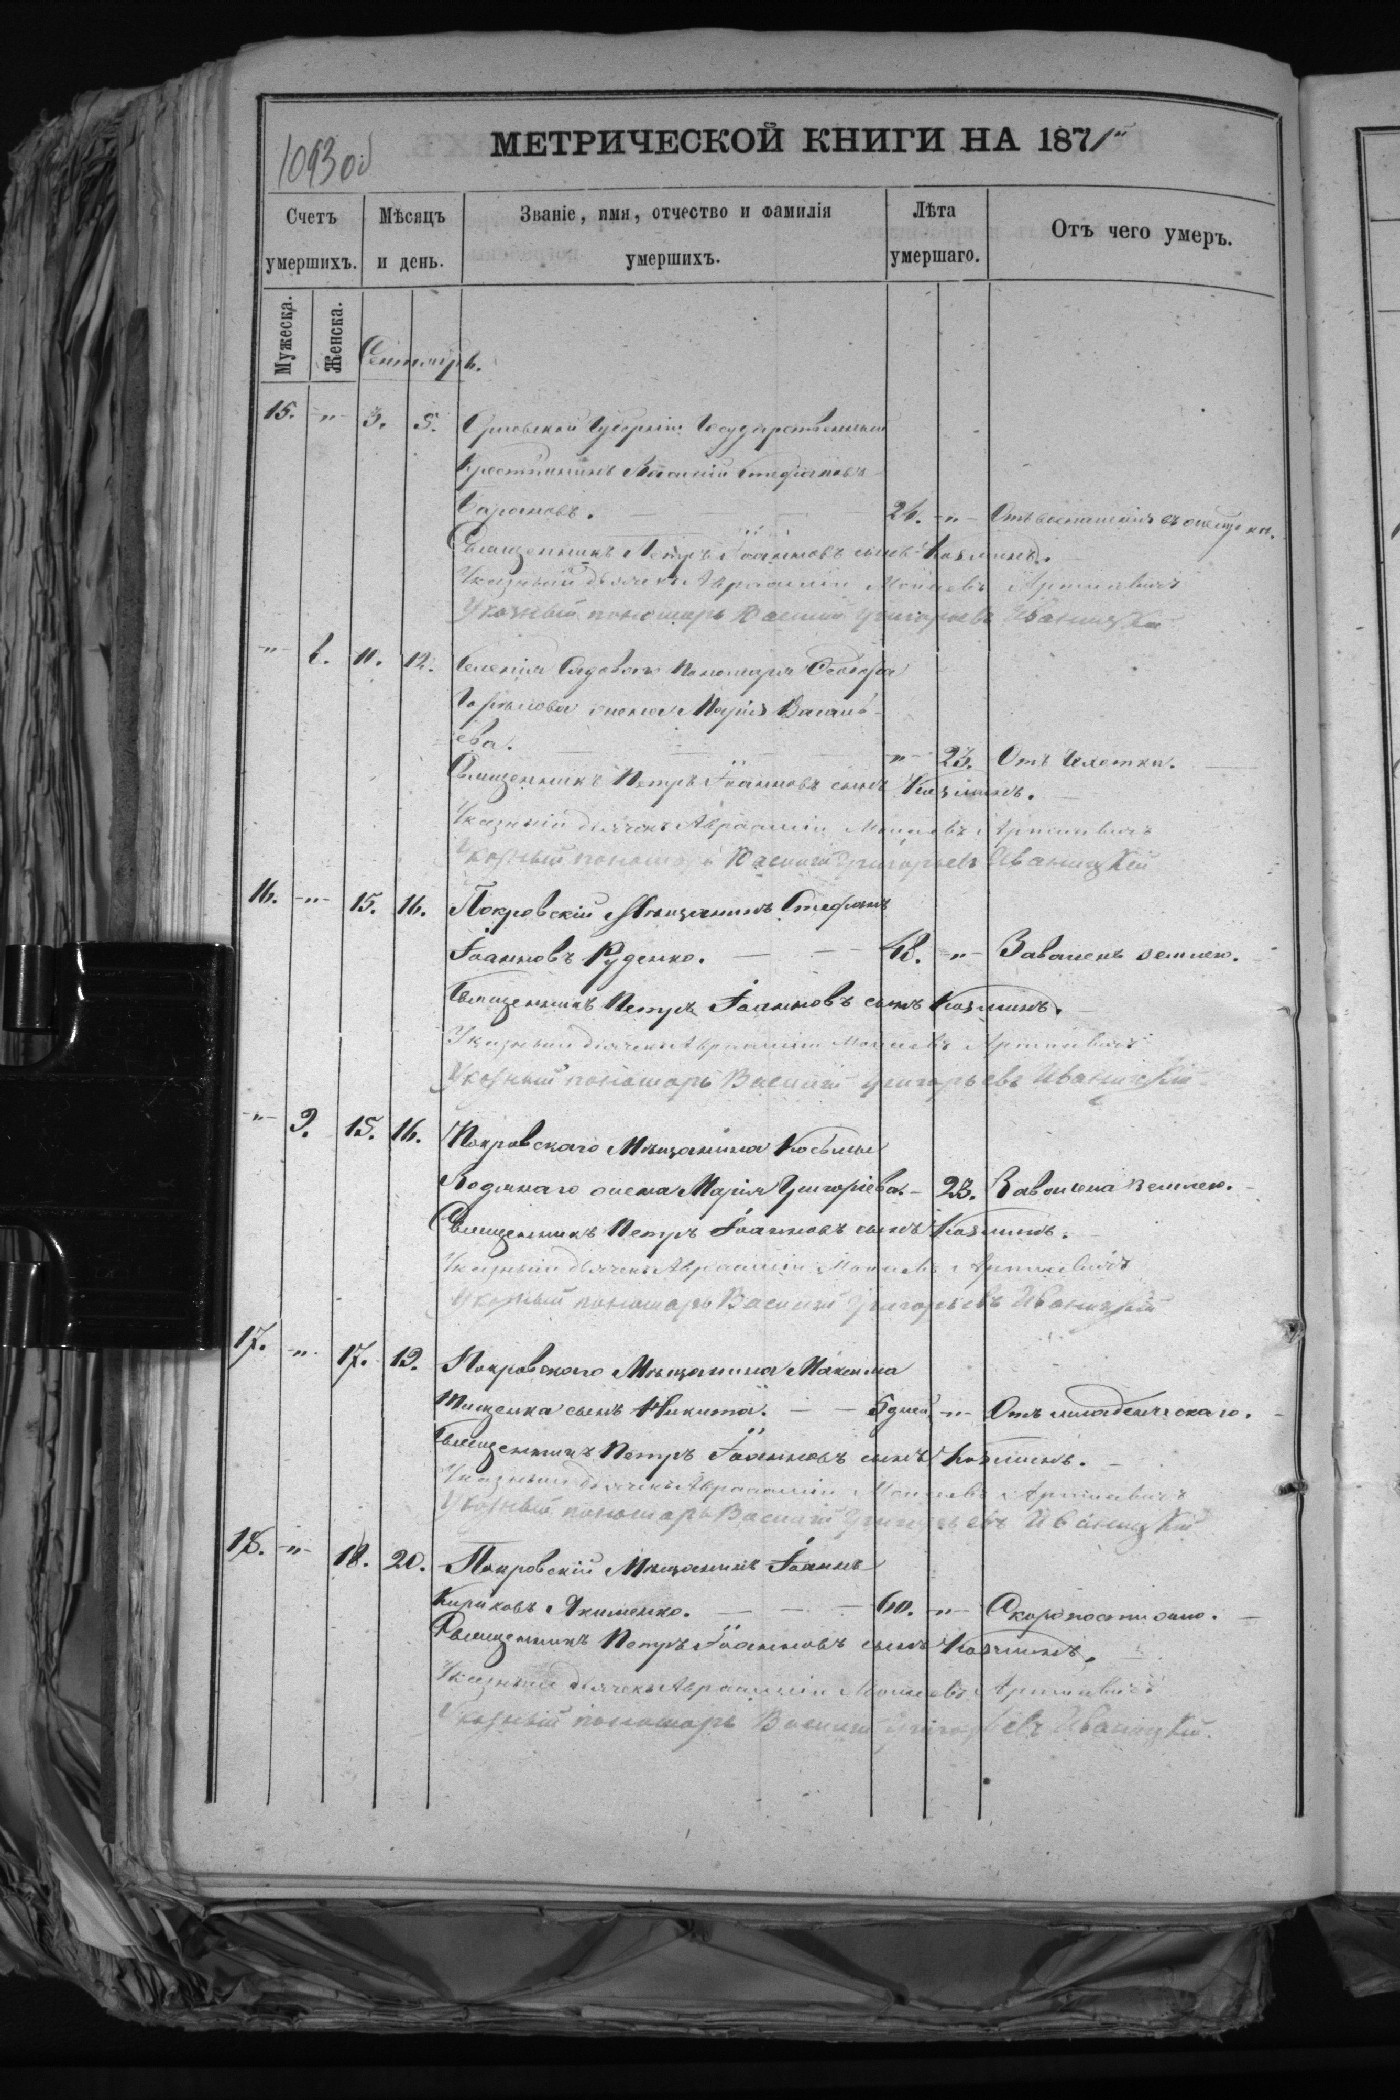 1093 об
МЕТРИЧЕСКОЙ КНИГИ НА 1871й
Счетъ умершихъ.
Мѣсяцъ и день.
Званіе, имя, отчество и фамилія умершихъ.
Лѣта умершаго.
Отъ чего умеръ.
Мужеска.
Женска.
Сентябрь.
15. -"- 3. 5. Орловской Губерніи Государственный
Крестьянинъ Василій Стефановъ
Барановъ. 24. -"- Отъ воспаленія
Священникъ Петръ Іоанновъ сынъ Козминъ.
Указный дьячекъ Авраамій Моисеевъ
Указный пономарь Василій Григорьевъ Иваницкій
-"- 11. 12. Селенія пономаря
жена Марія Василь-
ева. -"- 23. Отъ чахотки.
Священникъ Петръ Іоанновъ сынъ Козминъ.
Указный дьячекъ Авраамій Моисеевъ
Указный пономарь Василій Григорьевъ Иваницкій
16. -"- 15. 16. Покровскій Мѣщанинъ Стефанъ
Іоанновъ Руденко. 48. -"- Заваленъ землею.
Священникъ Петръ Іоанновъ сынъ Козминъ.
Указный дьячекъ Авраамій Моисеевъ
Указный пономарь Василій Григорьевъ Иваницкій
-"- 9. 15. 16. Покровскаго Мѣщанина Косьмы
жена Марія Григоріева 23. Завалена землею.
Священникъ Петръ Іоанновъ сынъ Козминъ.
Указный дьячекъ Авраамій Моисеевъ
Указный пономарь Василій Григорьевъ Иваницкій
17. -"- 17. 19. Покровскаго Мѣщанина Максима
Тищенка сынъ Никита. дней -"- Отъ младенческаго.
Священникъ Петръ Іоанновъ сынъ Козминъ.
Указный дьячекъ Авраамій Моисеевъ
Указный пономарь Василій Григорьевъ Иваницкій
18. -"- 18. 20. Покровскій Мѣщанинъ Іоаннъ
Кириковъ Якименко. 60. -"- Скоропостижно.
Священникъ Петръ Іоанновъ сынъ Козминъ.
Указный дьячекъ Авраамій Моисеевъ
Указный пономарь Василій Григорьевъ Иваницкій.